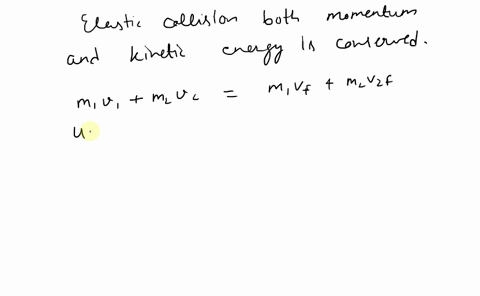 Elastic collision both momentum
and kinetic energy is conserved.
m₁v₁ + m₂v₂ = m₁v_f + m₂v_2f
u